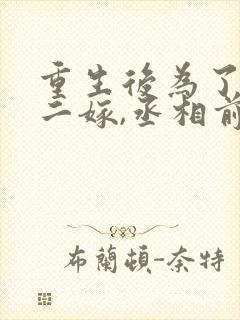 重生後為了
二嫁,丞相前
布蘭頓-奈特